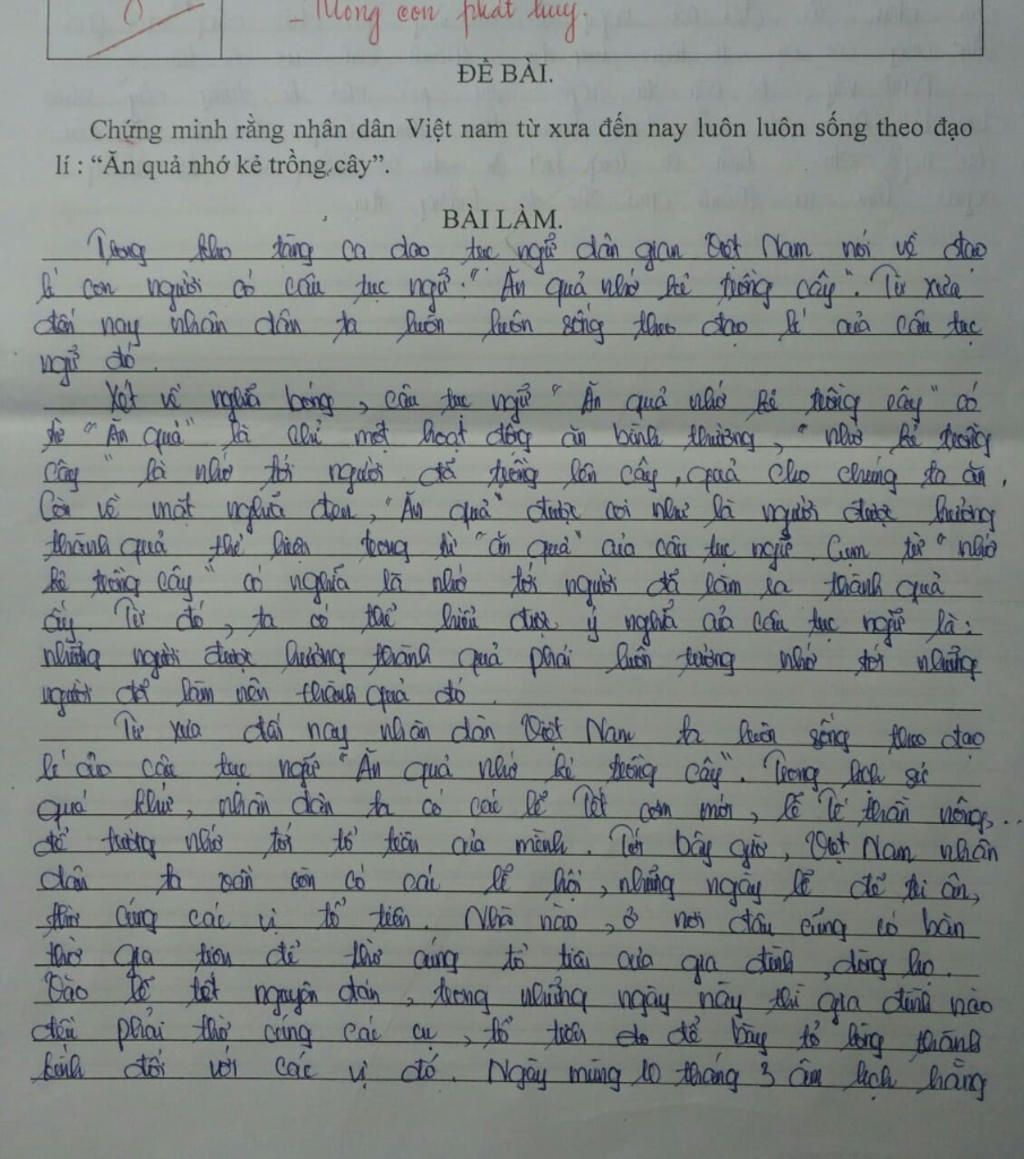 - Mong con phát huy.
ĐỀ BÀI.
Chứng minh rằng nhân dân Việt nam từ xưa đến nay luôn luôn sống theo đạo
lí : “Ăn quả nhớ kẻ trồng cây”.
BÀI LÀM.
Trong kho tàng ca dao tục ngữ dân gian Việt Nam nói về đạo
lí con người có câu tục ngữ: "Ăn quả nhớ kẻ trồng cây". Từ xưa
đến nay nhân dân ta luôn luôn sống theo đạo lí của câu tục
ngữ đó.
Xét về nghĩa bóng, câu tục ngữ "Ăn quả nhớ kẻ trồng cây" có
từ "Ăn quả" là chỉ một hoạt động ăn bình thường, "nhớ kẻ trồng
cây" là nhớ tới người đã trồng lên cây, quả cho chúng ta ăn.
Còn về mặt nghĩa đen, "Ăn quả" được coi như là người được hưởng
thành quả thể hiện trong từ "ăn quả" của câu tục ngữ. Cụm từ "nhớ
kẻ trồng cây" có nghĩa là nhớ tới người đã làm ra thành quả
ấy. Từ đó, ta có thể hiểu được ý nghĩa của câu tục ngữ là:
những người được hưởng thành quả phải luôn tưởng nhớ tới những
người đã làm nên thành quả đó.
Từ xưa đến nay nhân dân Việt Nam ta luôn sống theo đạo
lí của câu tục ngữ "Ăn quả nhớ kẻ trồng cây". Trong lịch sử
quá khứ, nhân dân ta có các lễ Tết cơm mới, lễ Tế thần nông,...
để tưởng nhớ tới tổ tiên của mình. Tới bây giờ, Việt Nam nhân
dân ta vẫn còn có các lễ hội, những ngày lễ để tri ân,
thờ cúng các vị tổ tiên. Nhà nào, ở nơi đâu cũng có bàn
thờ gia tiên để thờ cúng tổ tiên của gia đình, dòng họ.
Vào lễ tết nguyên đán, trong những ngày này thì gia đình nào
đều phải thờ cúng các cụ, tổ tiên để bày tỏ lòng thành
kính đối với các vị đó. Ngày mùng 10 tháng 3 âm lịch hằng